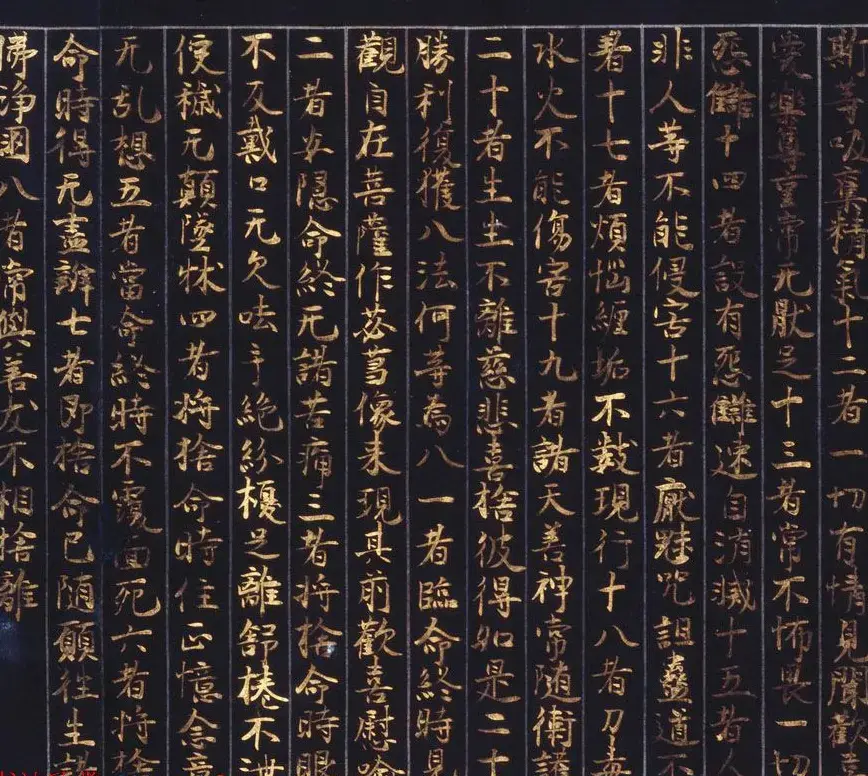 斯等吸棄精氣十二者一切有情見聞歡喜
愛樂尊重常无猒足十三者常不怖畏一切
怨讎十四者設有怨讎速自消滅十五者人
非人等不能侵害十六者厭魅咒詛蠱道不
著十七者煩惱纏垢不數現行十八者刀毒
水火不能傷害十九者諸天善神常随衛護
二十者生生不離慈悲喜捨彼得如是二十
勝利復獲八法何等為八一者臨命終時見
觀自在菩薩作苾蒭像来現其前歡喜慰喻
二者安隱命終无諸苦痛三者将捨命時眼
不反戴口无欠呿手絶紛擾足離舒棬不洩
便穢无顛墜牀四者将捨命時住正憶念意
无乱想五者當命終時不覆面死六者将捨
命時得无盡辯七者即捨命已随願往生諸
佛淨國八者常與善友不相捨離